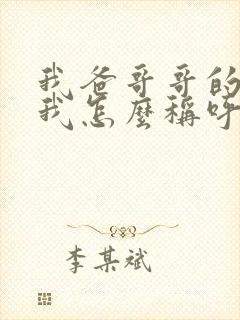 我爸哥哥的
我怎麼稱呼
李某斌